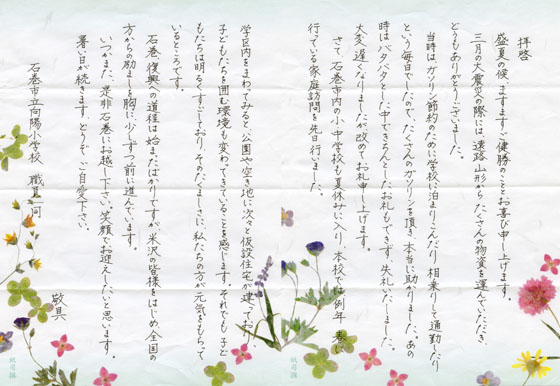 拝啓
盛夏の候、ますますご健勝のこととお喜び申し上げます。
三月の大震災の際には、遠路山形からたくさんの物資を運んでいただき、
どうもありがとうございました。
当時はガソリン節約のために学校に泊まりこんだり、相乗りして通勤したり
という毎日でしたので、たくさんのガソリンを頂き、本当に助かりました。あの
時はバタバタとした中できちんとしたお礼もできず、失礼いたしました。
大変遅くなりましたが改めてお礼申し上げます。
さて、石巻市内の小中学校も夏休みに入り、本校では例年春に
行っている家庭訪問を先日行いました。
学区内をまわってみると、公園や空き地に次々と仮設住宅が建っており、
子どもたちを囲む環境も変わってきていることを感じます。それでも、子ど
もたちは明るくすごしており、そのたくましさに私たちの方が元気をもらって
いるところです。
石巻復興の道程は始まったばかりですが、米沢の皆様をはじめ、全国の
方からの励ましを胸に、少しずつ前に進んでいます。
いつかまた、是非石巻にお越し下さい。笑顔でお迎えしたいと思います。
暑い日が続きます。どうぞ、ご自愛下さい。
敬具
石巻市立向陽小学校 職員一同